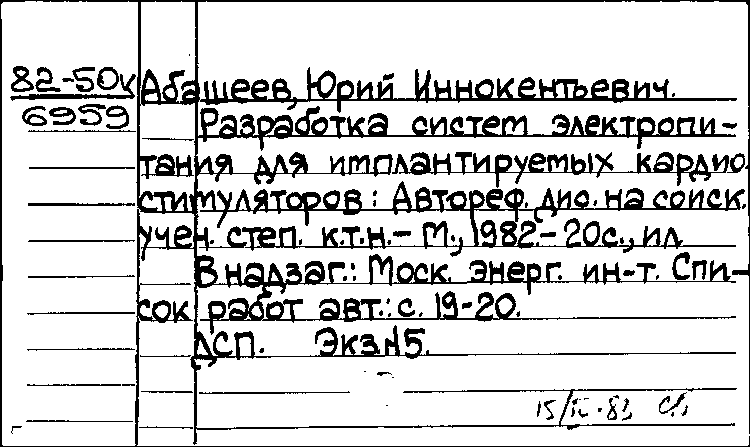 82-50к
6959
Абашеев, Юрий Иннокентьевич.
Разработка систем электропи-
тания для имплантируемых кардио.
стимуляторов: Автореф. дис. на соиск.
учен. степ. к.т.н. - М., 1982. - 20с., ил.
В надзаг.: Моск. энерг. ин-т. Спи-
сок работ авт.: с. 19-20.
ДСП. Экз№5.